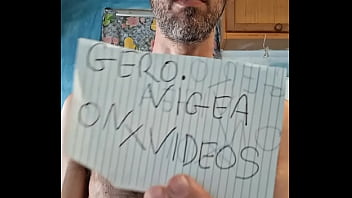 GERO.
AIGEA
ONXVIDEOS